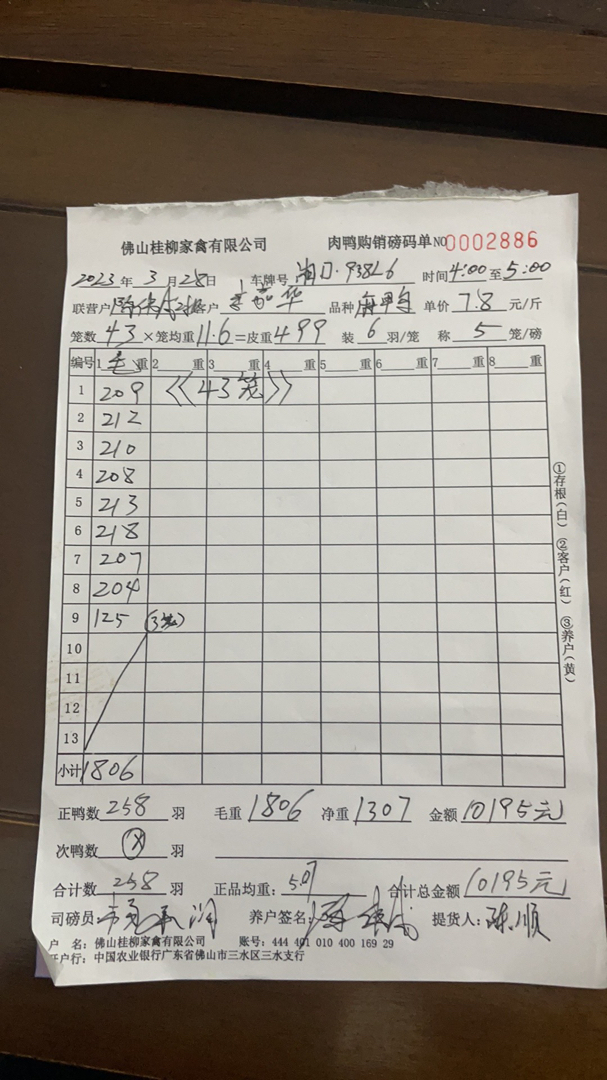 佛山桂柳家禽有限公司 肉鸭购销磅码单 NO 0002886
2023年 3月28日 车牌号 湘D·938L6 时间4:00至5:00
联营户 客户 华 品种 麻鸭 单价 7.8 元/斤
笼数 43 ×笼均重 11.6 =皮重 499 装 6 羽/笼 称 5 笼/磅
编号 1 毛 重 2 重 3 重 4 重 5 重 6 重 7 重 8 重
1 209 《《43笼》》
2 212
3 210
4 208
5 213
6 218
7 207
8 204
9 125 (3笼)
10
11
12
13
小计 1806
①存根(白) ②客户(红) ③养户(黄)
正鸭数 258 羽 毛重 1806 净重 1307 金额 10195元
次鸭数 ⊗ 羽
合计数 258 羽 正品均重: 5.07 合计总金额 10195元
司磅员: 养户签名: 提货人: 陈顺
户 名: 佛山桂柳家禽有限公司 账号: 444 401 010 400 169 29
开户行: 中国农业银行广东省佛山市三水区三水支行